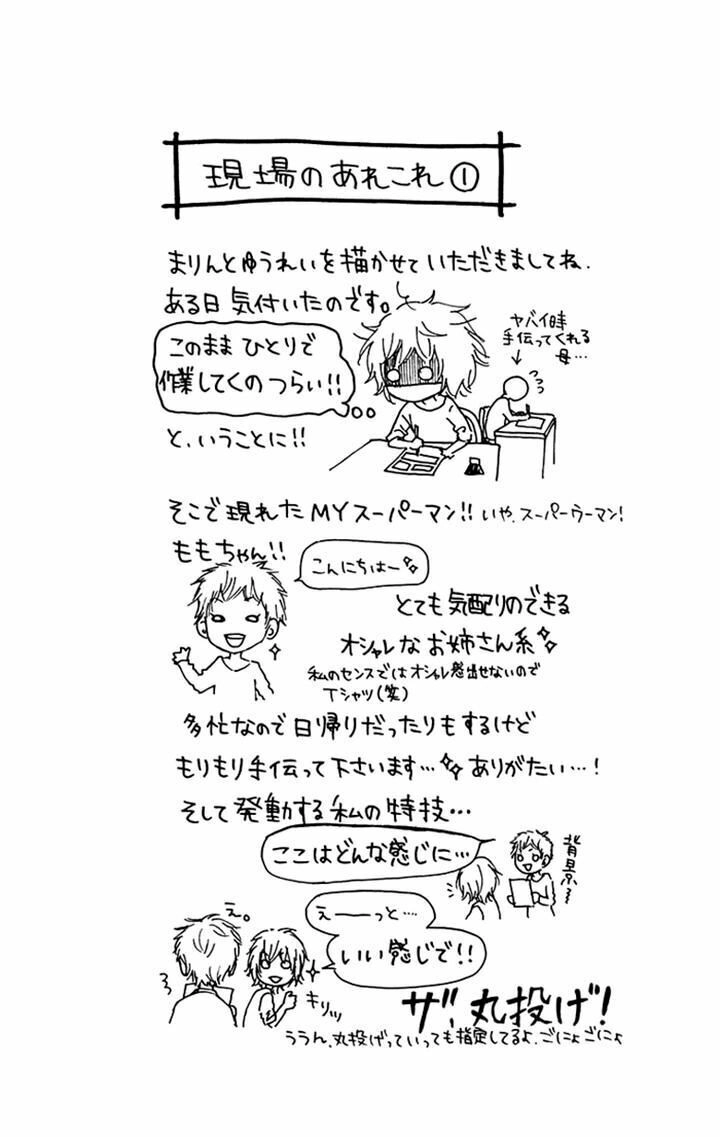 現場のあれこれ①
まりんとゆうれいを描かせていただきましてね、
ある日気付いたのです。
このままひとりで
作業してくのつらい!!
ヤバイ時
手伝ってくれる
母…
と、いうことに!!
そこで現れたMYスーパーマン!!いや、スーパーウーマン!
ももちゃん!!
こんにちはー
とても気配りのできる
オシャレなお姉さん系
私のセンスではオシャレ感出せないので
Tシャツ(笑)
多忙なので日帰りだったりもするけど
もりもり手伝って下さいます…ありがたい…!
そして発動する私の特技…
ここはどんな感じに…
背景
えーーっと…
いい感じで!!
え。
キリッ
ザ、丸投げ!
ううん、丸投げっていっても指定してるよ、ごにょごにょ